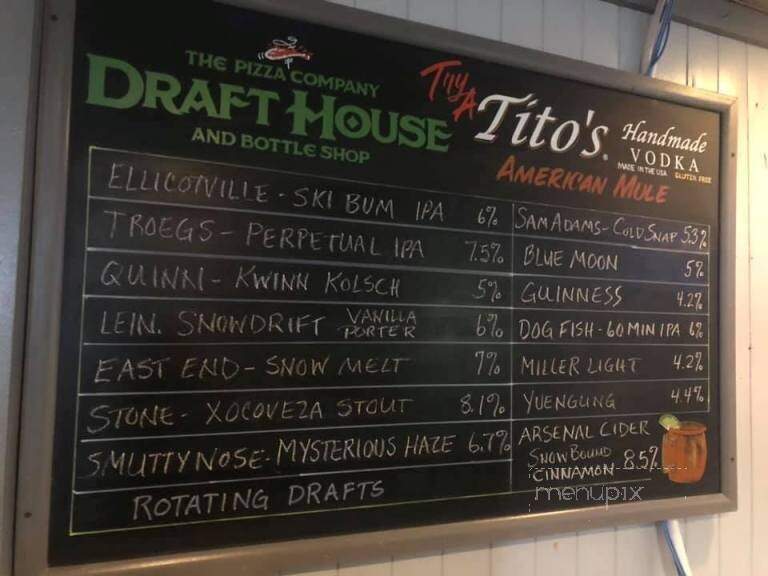 THE PIZZA COMPANY
DRAFT HOUSE
AND BOTTLE SHOP
Try A
Tito's
Handmade
VODKA
MADE IN THE USA GLUTEN FREE
AMERICAN MULE
ELLICOTVILLE - SKI BUM IPA 6%
TROEGS - PERPETUAL IPA 7.5%
QUINN - KWINN KOLSCH 5%
LEIN. SNOWDRIFT VANILLA PORTER 6%
EAST END - SNOW MELT 7%
STONE - XOCOVEZA STOUT 8.1%
SMUTTYNOSE - MYSTERIOUS HAZE 6.7%
ROTATING DRAFTS
SAM ADAMS - COLD SNAP 5.3%
BLUE MOON 5%
GUINNESS 4.2%
DOG FISH - 60 MIN IPA 6%
MILLER LIGHT 4.2%
YUENGLING 4.4%
ARSENAL CIDER
SNOW BOUND
CINNAMON 8.5%
menupix